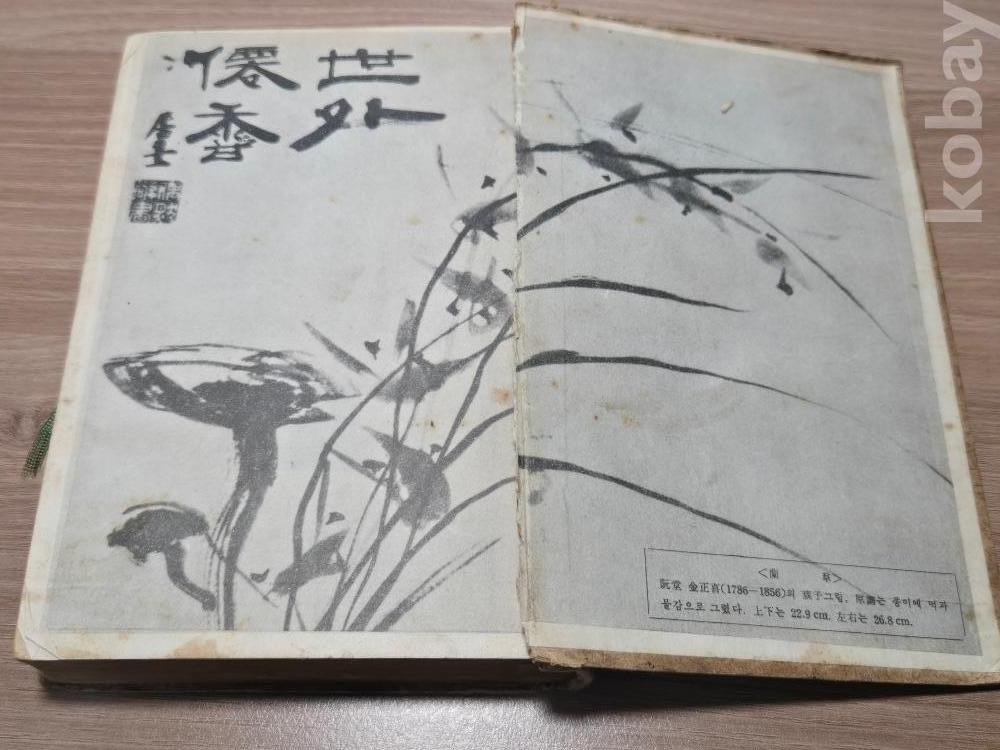 世外
僊香
居士
<蘭 草>
阮堂 金正喜(1786—1856)의 그림. 原畵는 종이에 먹과
물감으로 그렸다. 上下는 22.9 cm, 左右는 26.8 cm.
kobay